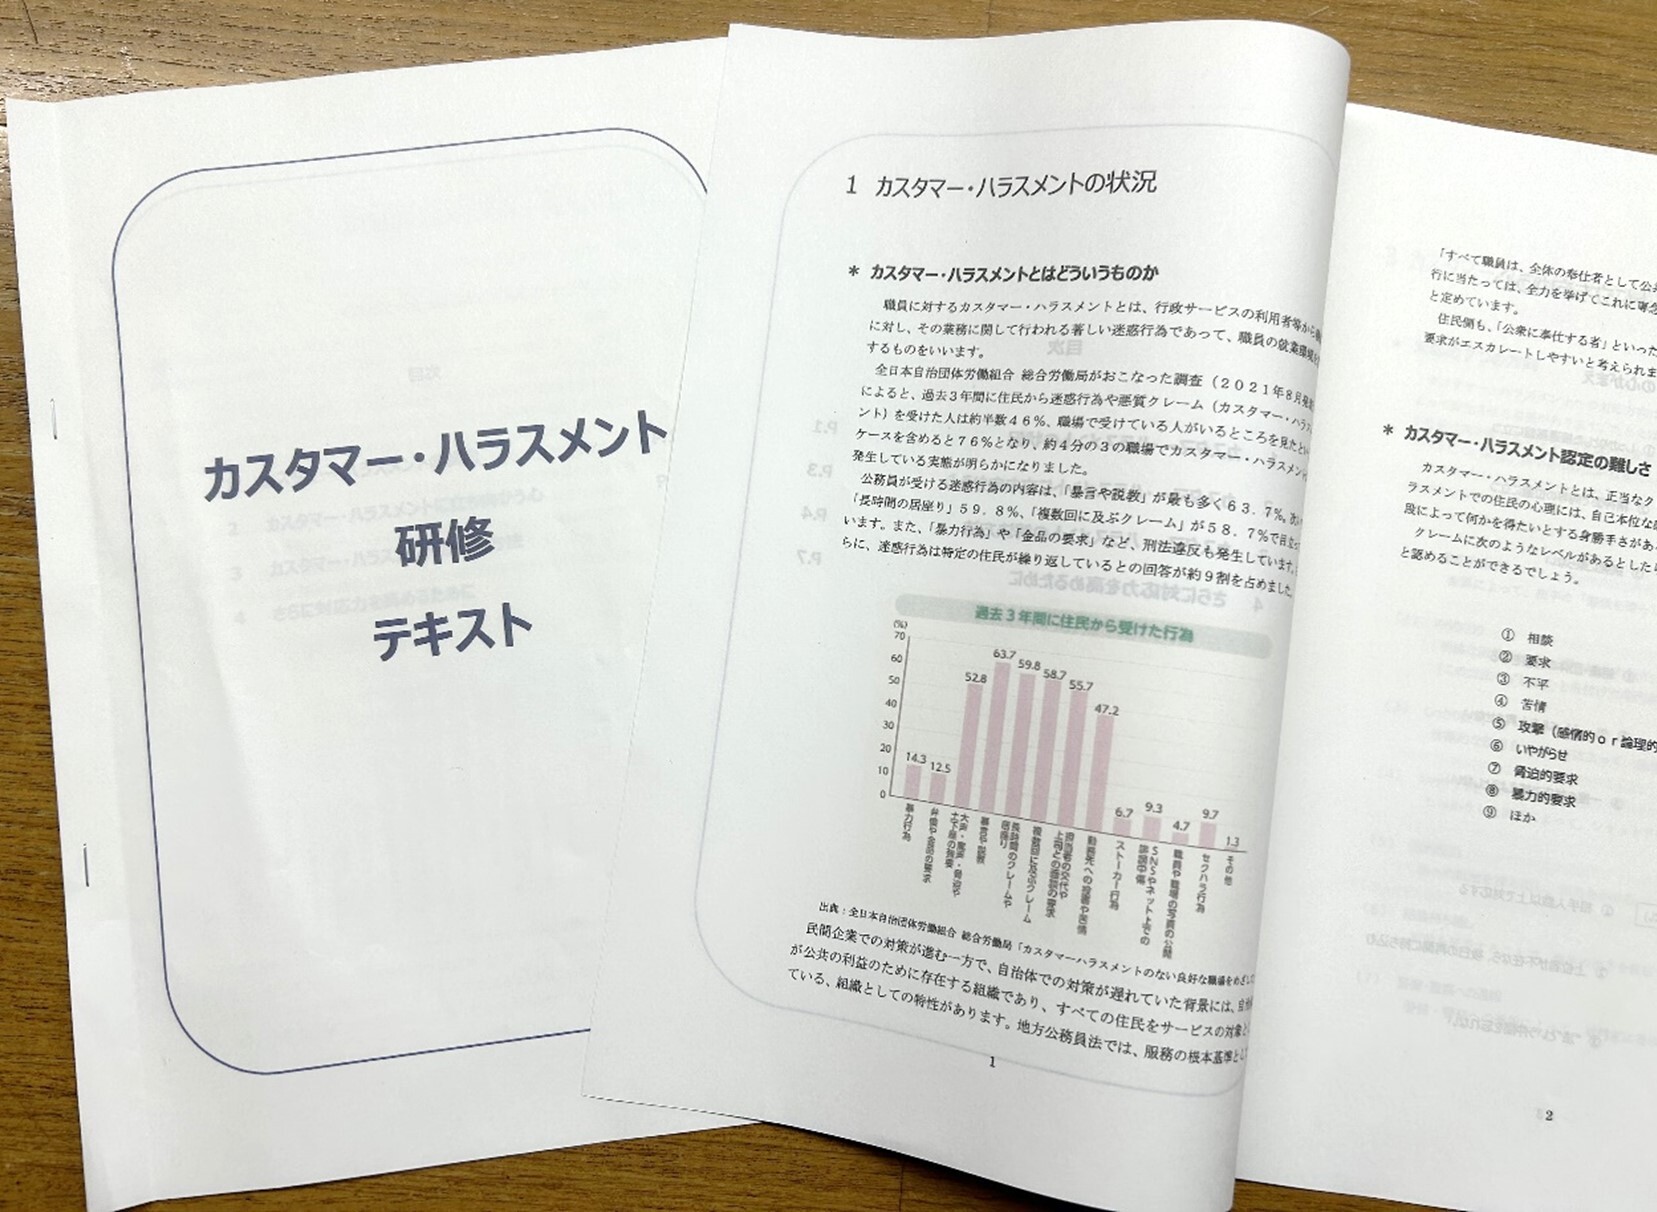 カスタマー・ハラスメント
研修
テキスト
1 カスタマー・ハラスメントの状況
* カスタマー・ハラスメントとはどういうものか
職員に対するカスタマー・ハラスメントとは、行政サービスの利用者等から
に対し、その業務に関して行われる著しい迷惑行為であって、職員の就業環境を
するものをいいます。
全日本自治団体労働組合 総合労働局がおこなった調査（２０２１年８月
によると、過去３年間に住民から迷惑行為や悪質クレーム（カスタマー・ハラス
メント）を受けた人は約半数４６％、職場で受けている人がいるところを見たとい
ケースを含めると７６％となり、約４分の３の職場でカスタマー・ハラスメン
発生している実態が明らかになりました。
公務員が受ける迷惑行為の内容は、「暴言や説教」が最も多く６３．７％。次い
「長時間の居座り」５９．８％、「複数回に及ぶクレーム」が５８．７％で目立っ
います。また、「暴力行為」や「金品の要求」など、刑法違反も発生しています。
らに、迷惑行為は特定の住民が繰り返しているとの回答が約９割を占めました。
過去３年間に住民から受けた行為
(%)
70
60
50
40
30
20
10
0
14.3
12.5
52.8
63.7
59.8
58.7
55.7
47.2
6.7
9.3
4.7
9.7
1.3
暴力行為
暴言や説教
長時間のクレームや
居座り
複数回に及ぶクレーム
ストーカー行為
SNSやネット上での
誹謗中傷
職員や職場の写真の公開
セクハラ行為
その他
出典：全日本自治団体労働組合 総合労働局「カスタマーハラスメントのない良好な職場をめざして
民間企業での対策が進む一方で、自治体での対策が遅れていた背景には、自治
が公共の利益のために存在する組織であり、すべての住民をサービスの対象と
ている、組織としての特性があります。地方公務員法では、服務の根本基準とし
1
「すべて職員は、全体の奉仕者として公共
行に当たっては、全力を挙げてこれに専念
と定めています。
住民側も、「公衆に奉仕する者」といった
要求がエスカレートしやすいと考えられま
* カスタマー・ハラスメント認定の難しさ
カスタマー・ハラスメントとは、正当なク
ラスメントでの住民の心理には、自己本位な
段によって何かを得たいとする身勝手さがあ
クレームに次のようなレベルがあるとした
と認めることができるでしょう。
① 相談
② 要求
③ 不平
④ 苦情
⑤ 攻撃（感情的ｏｒ論理的
⑥ いやがらせ
⑦ 脅迫的要求
⑧ 暴力的要求
⑨ ほか
2